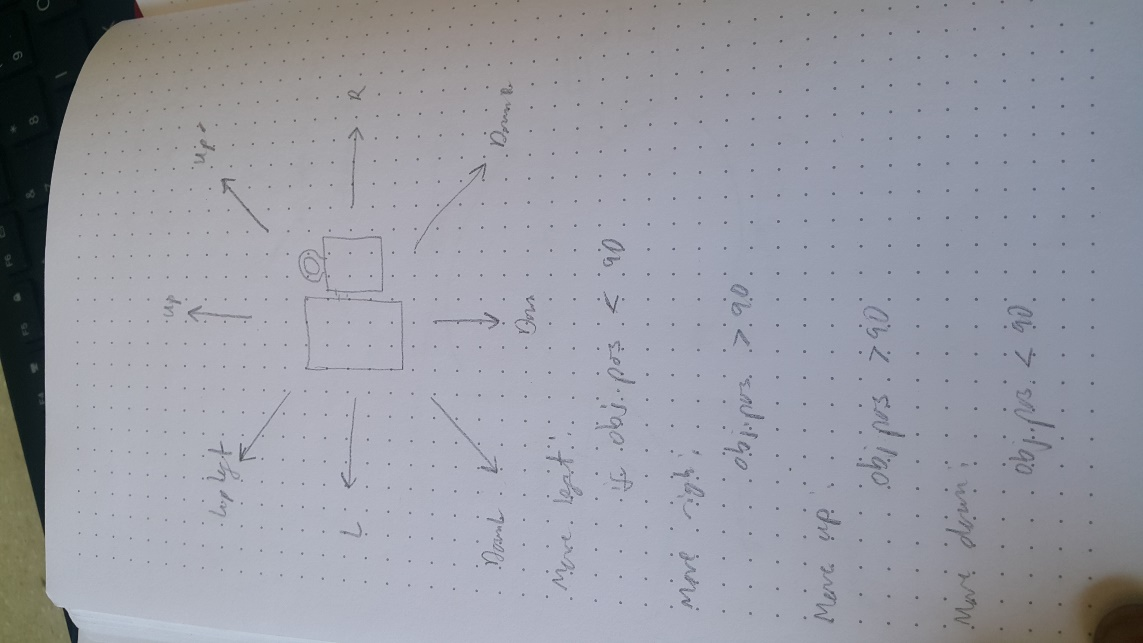 Up left
Up
Up r
L
R
Down L
Down
Down R
Move left:
If obj.pos < 90
Move righ:
obj.pos. > 90
Move up:
obj.pos > 90
Move down:
obj.pos. < 90